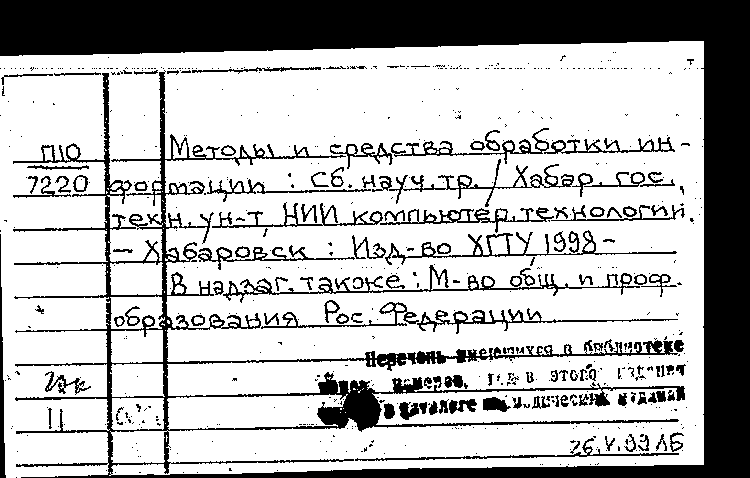 П10
7220
Методы и средства обработки ин-
формации : Сб. науч. тр. / Хабар. гос.
техн. ун-т, НИИ компьютер. технологий.
– Хабаровск : Изд-во ХГТУ, 1998 –
В надзаг. также : М-во общ. и проф.
образования Рос. Федерации
Перечень имеющихся в библиотеке
номеров, этого
в каталоге изданий
11
26.V.99 ЛБ